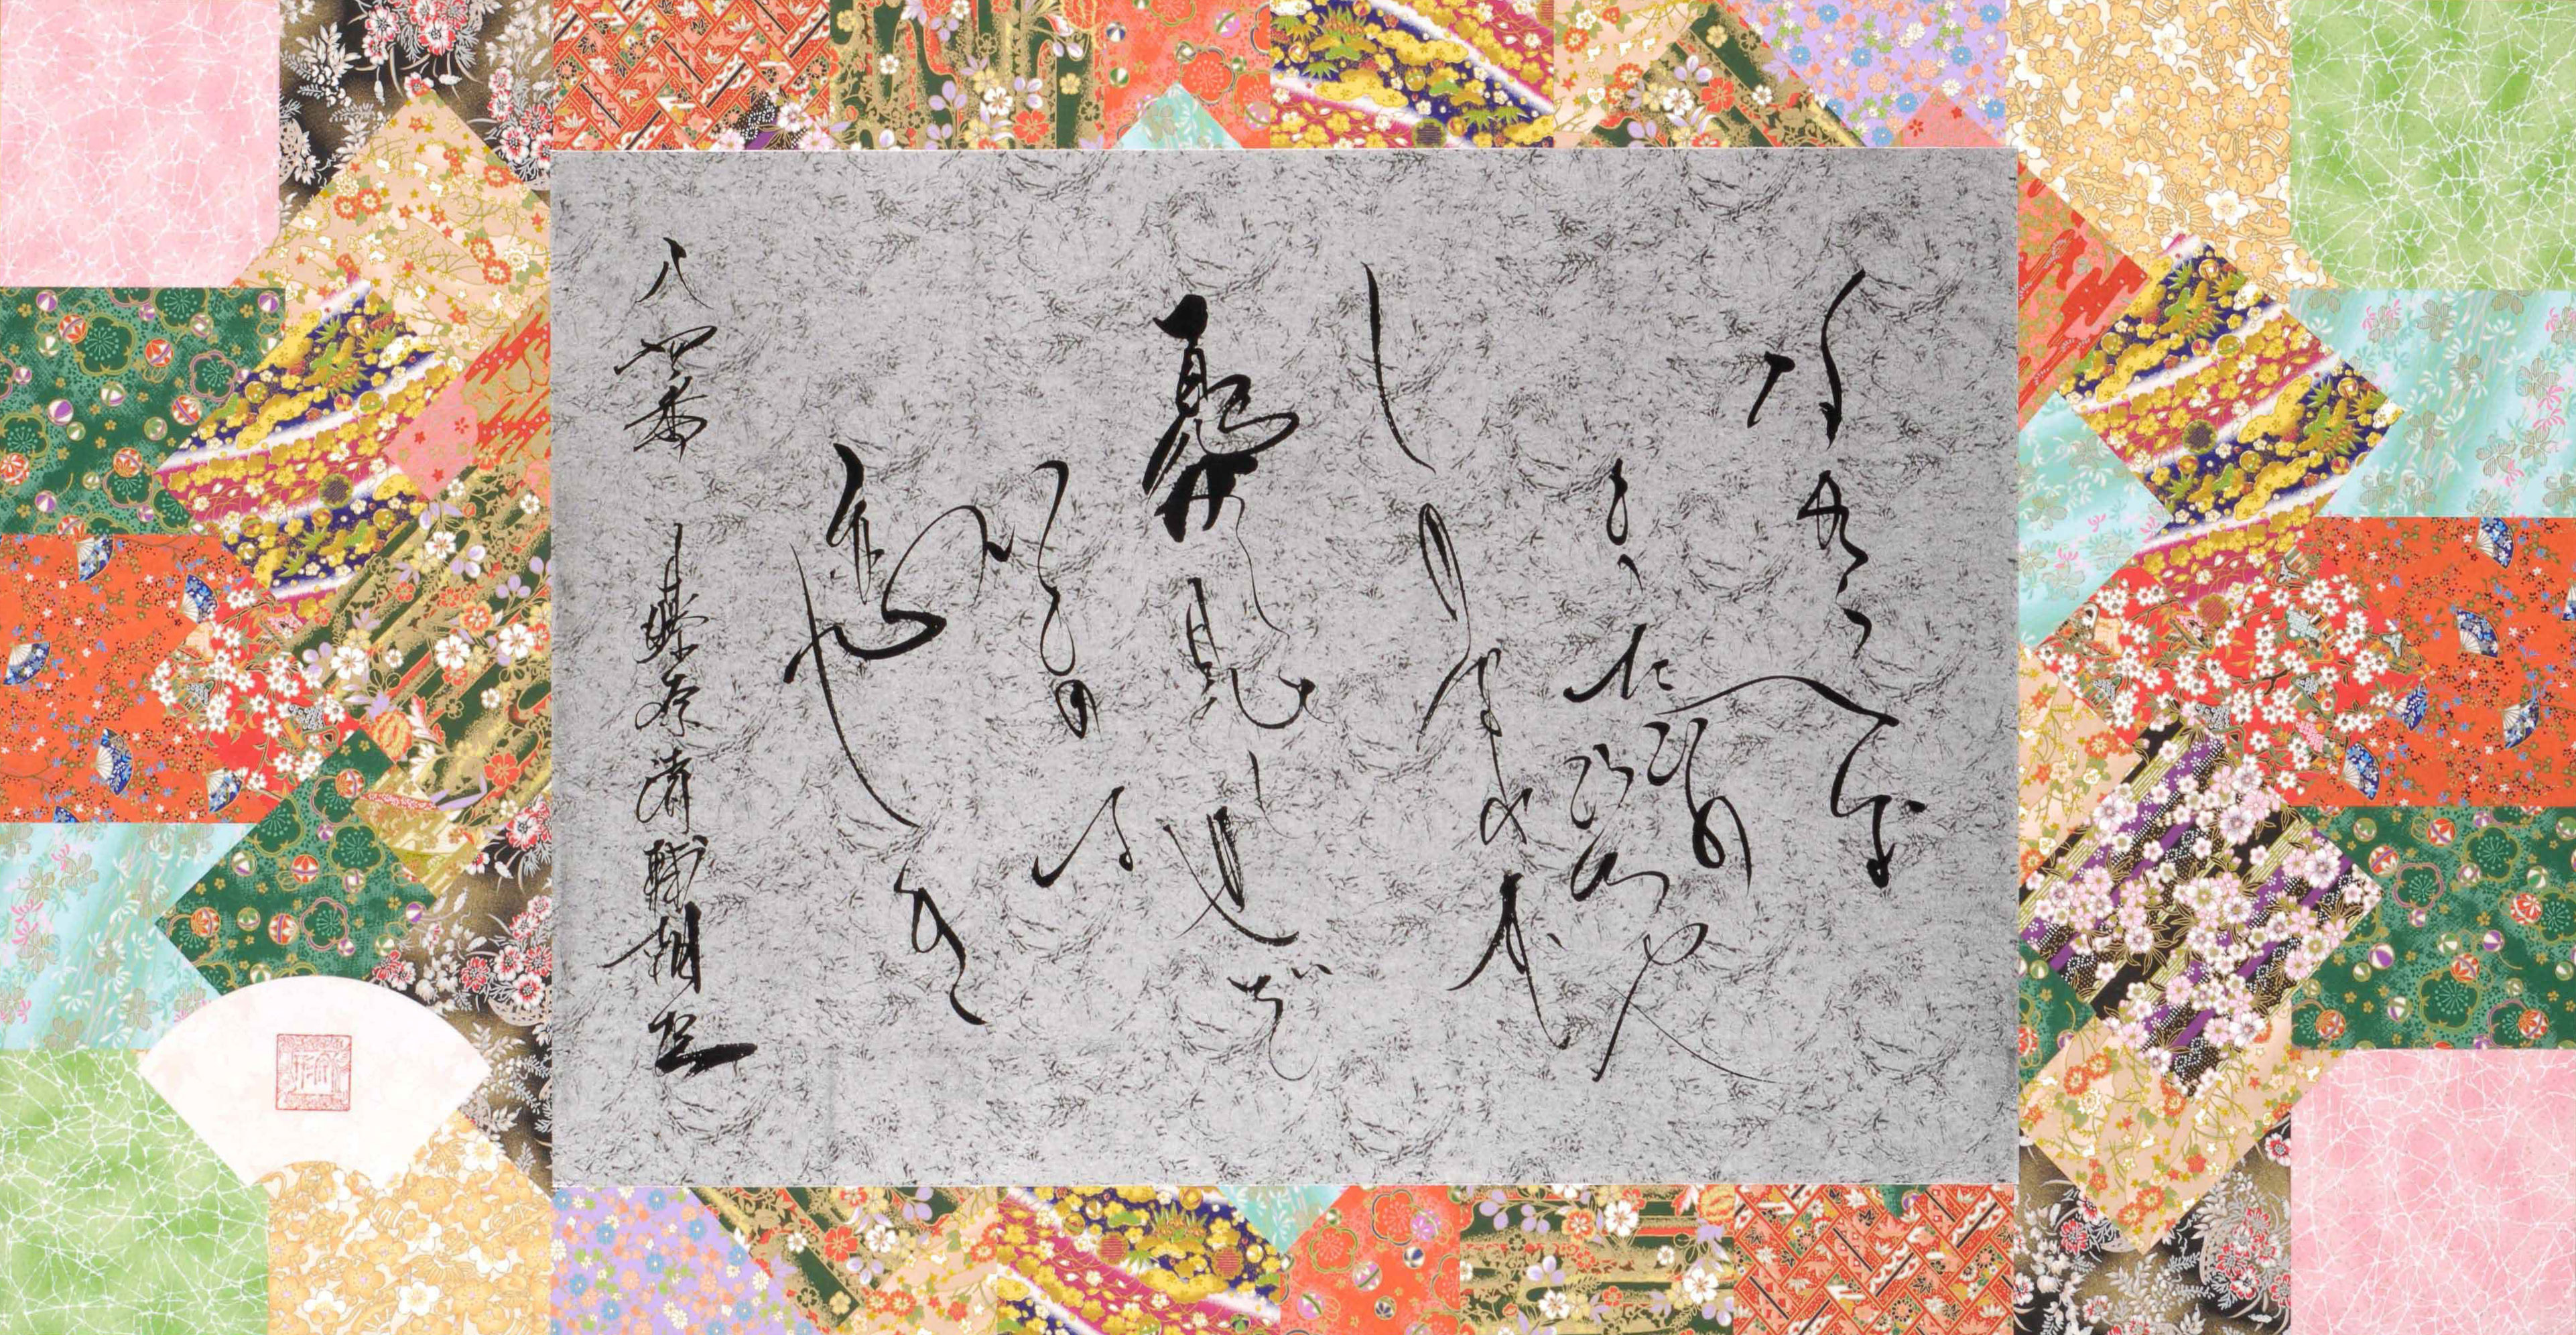 ながらへば
またこの
ころや
しのばれむ
憂しと見し世ぞ
いまは
恋しき
八四番 藤原清輔朝臣